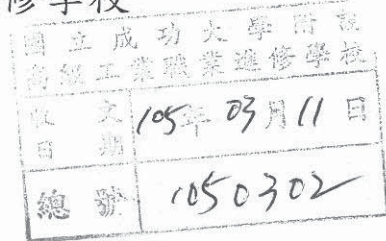 修學校
國立成功大學附設
高級工業職業進修學校
收文日期 105年 03月 11日
總號 1050302